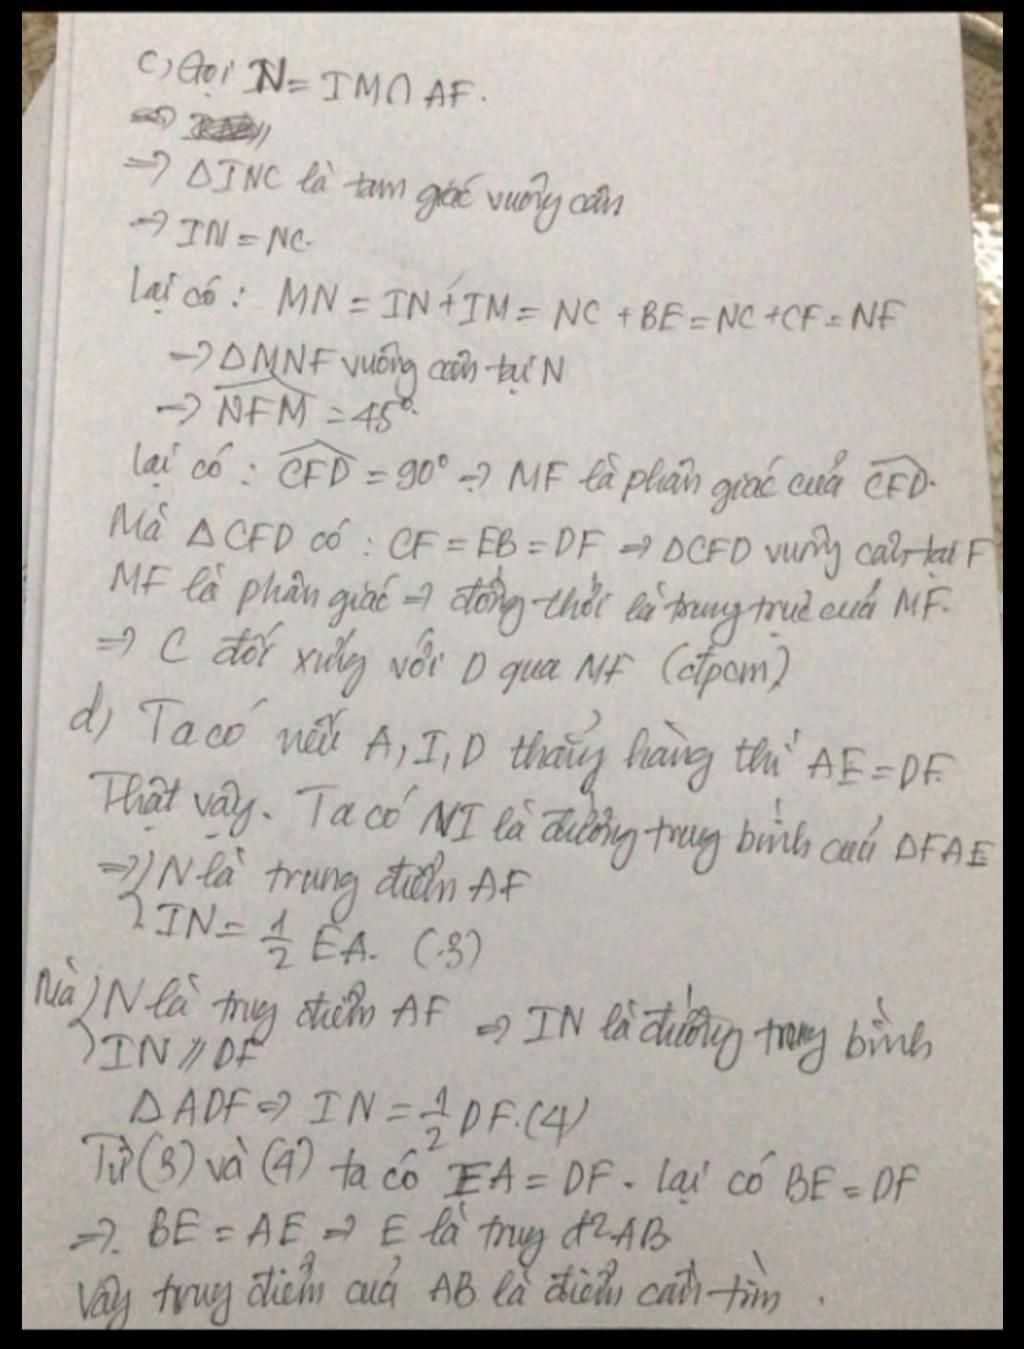 c) Gọi N = IM ∩ AF.
=>
=> ΔINC là tam giác vuông cân
=> IN = NC.
Lại có: MN = IN + IM = NC + BE = NC + CF = NF
-> ΔMNF vuông cân tại N
-> \widehat{NFM} = 45°.
Lại có: \widehat{CFD} = 90° => MF là phân giác của \widehat{CFD}.
Mà ΔCFD có: CF = EB = DF => ΔCFD vuông cân tại F
MF là phân giác => đồng thời là trung trực của MF.
=> C đối xứng với D qua MF (đpcm)
d) Ta có nếu A, I, D thẳng hàng thì AE = DF.
Thật vậy. Ta có NI là đường trung bình của ΔFAE
=> } N là trung điểm AF
IN = 1/2 EA. (3)
Mà } N là trung điểm AF => IN là đường trung bình
IN // DF
ΔADF => IN = 1/2 DF. (4)
Từ (3) và (4) ta có EA = DF. Lại có BE = DF
=> BE = AE => E là trung đ² AB
Vậy trung điểm của AB là điểm cần tìm.